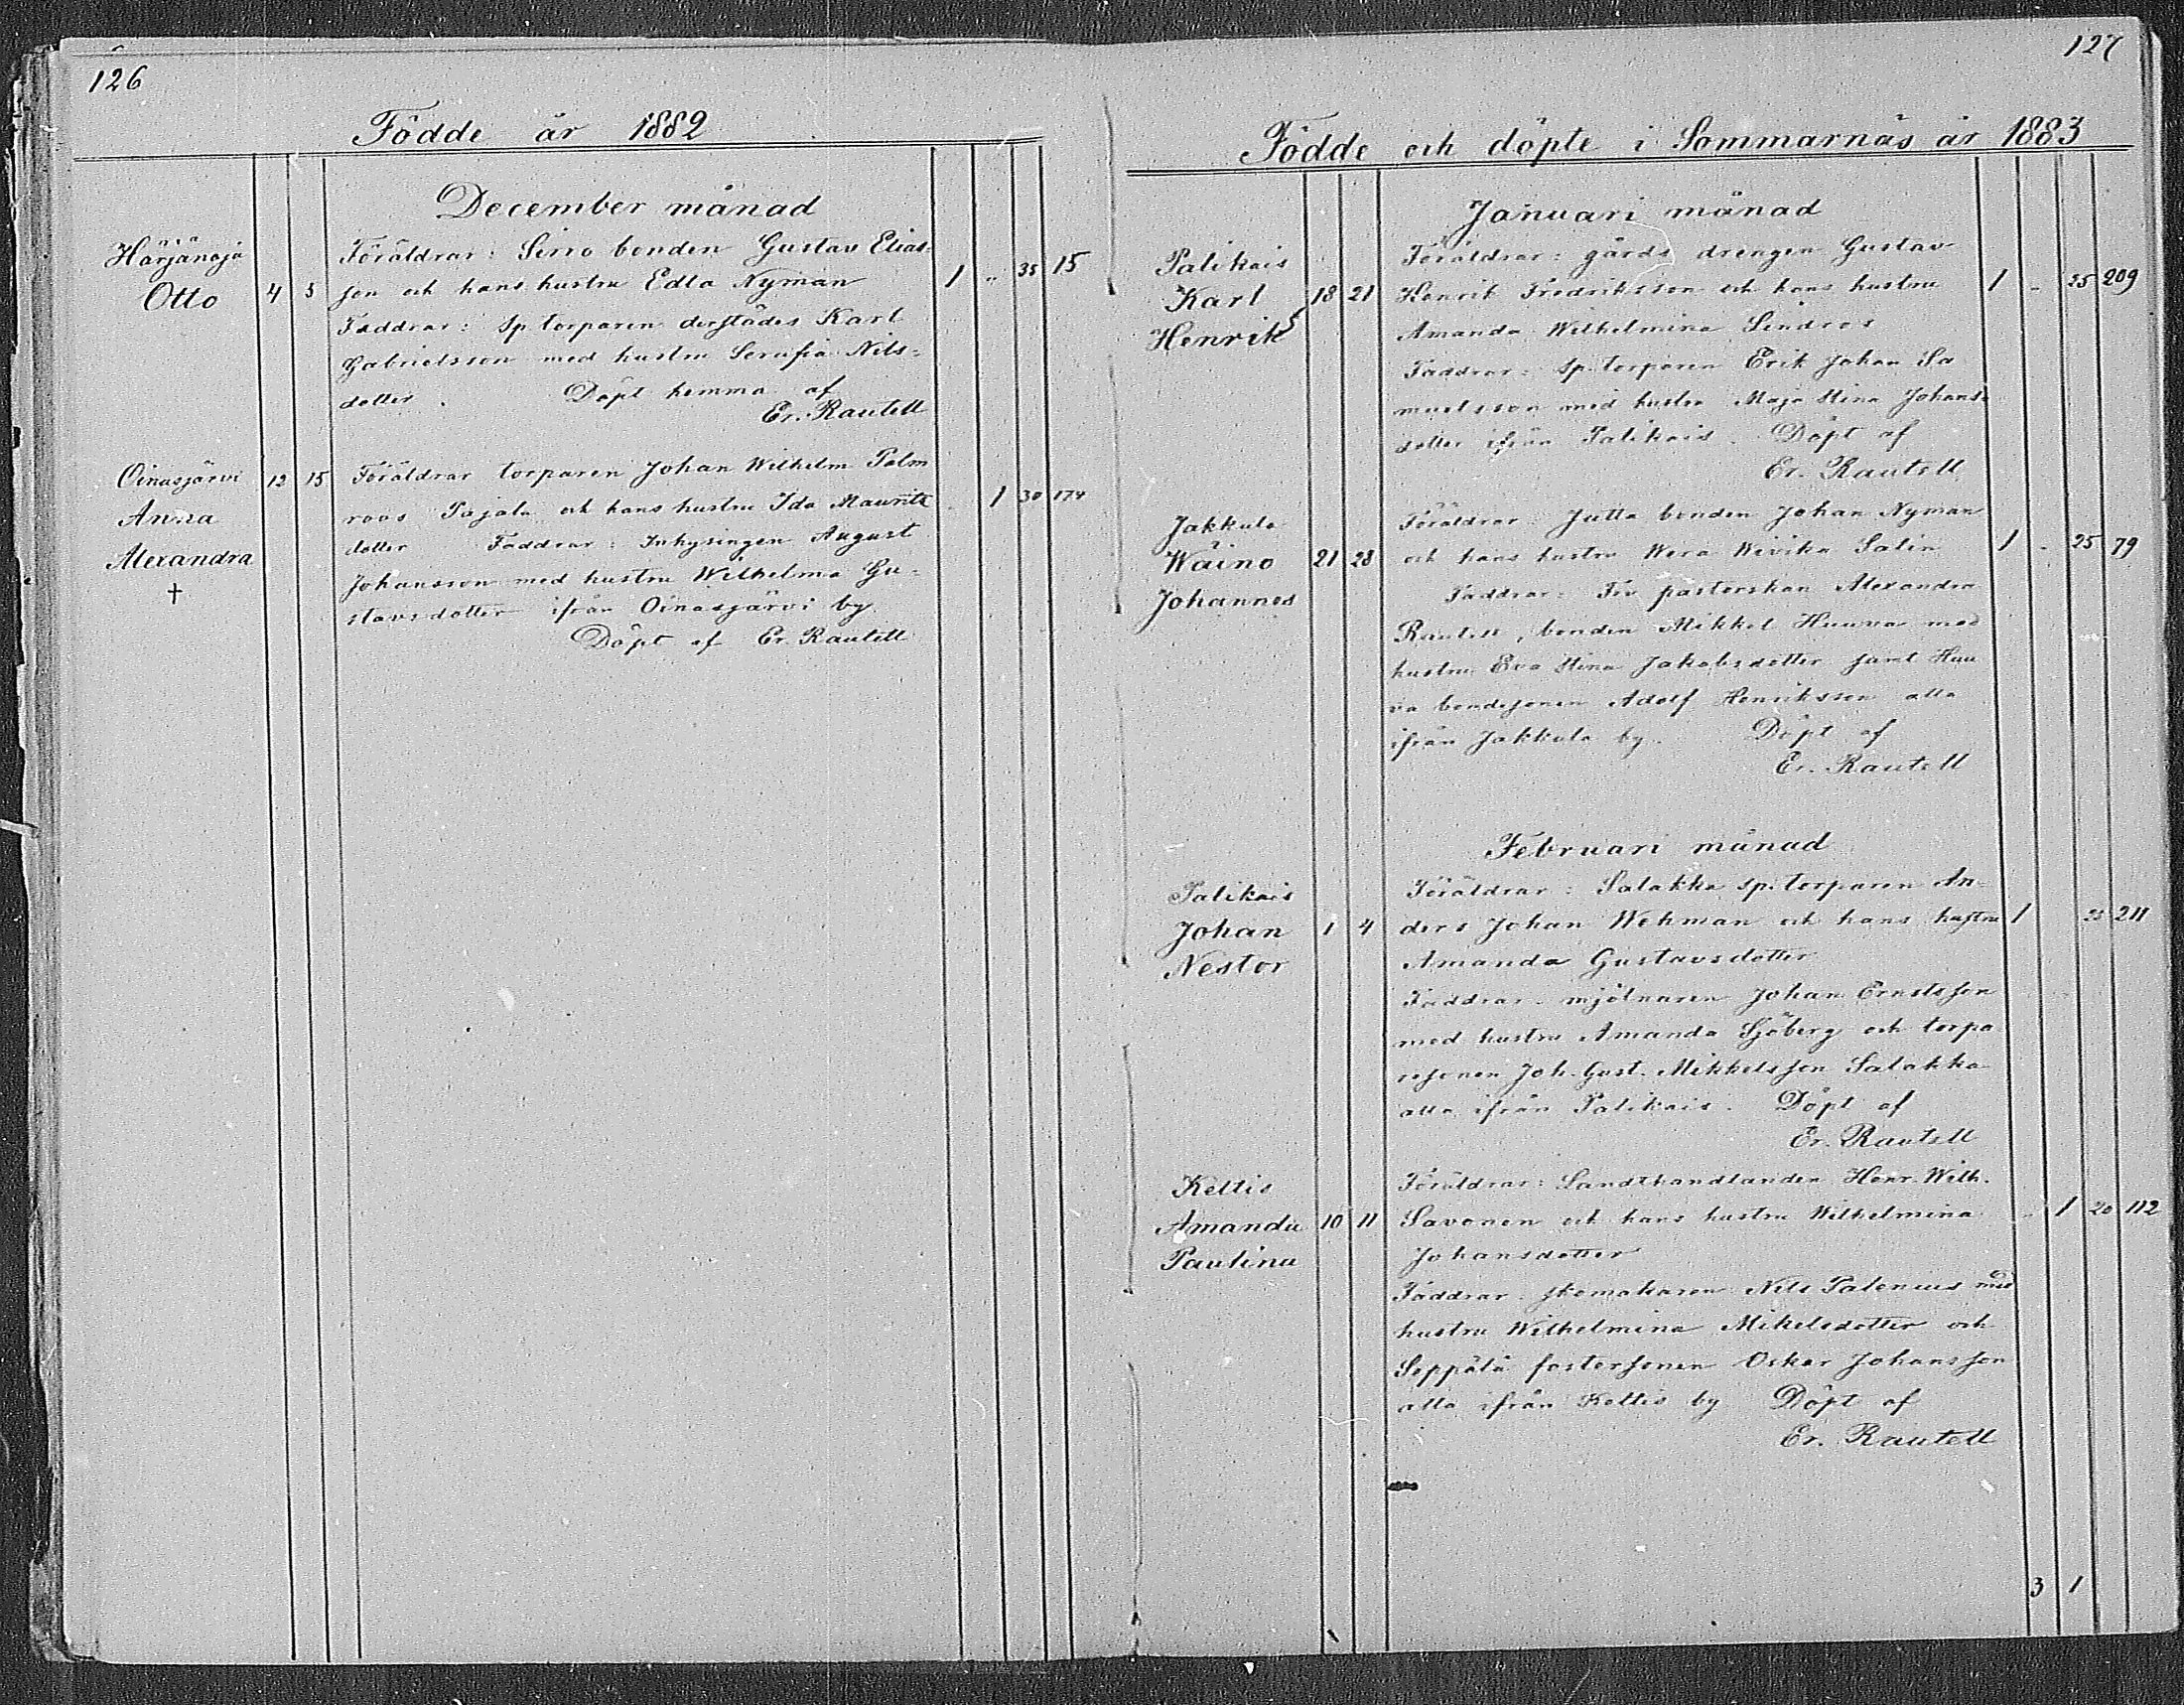 126
Födde år 1882
December månad
Härjänoja
Otto
4 5
Föräldrar: Sirro bonden Gustav Elias-
son och hans hustru Edla Nyman
Faddrar: Sp. torparen derstädes Karl
Gabrielsson med hustru Serafia Nils-
dotter. Döpt hemma af
Er. Rautell
1 " 35 15
Oinasjärvi
Anna
Alexandra
†
12 15
Föräldrar torparen Johan Wilhelm Palm
roos Pajala och hans hustru Ida Maurits
dotter Faddrar: Inhysingen August
Johansson med hustru Wilhelma Gu-
stavsdotter ifrån Oinasjärvi by.
Döpt af Er. Rautell
1 30 174
127
Födde och döpte i Sommarnäs år 1883
Januari månad
Palikais
Karl
Henrik
18 21
Föräldrar: gårds drengen Gustav
Henrik Fredriksson och hans hustru
Amanda Wilhelmina Lindros
Faddrar: Sp. torparen Erik Johan Sa
muelsson med hustru Maja Stina Johans
dotter ifrån Palikais. Döpt af
Er. Rautell
1 - 25 209
Jakkula
Wäino
Johannes
21 28
Föräldrar: Jutla bonden Johan Nyman
och hans hustru Wera Wivika Salin
Faddrar: Fru pastorskan Alexandra
Rautell, bonden Mikkel Huuva med
hustru Eva Stina Jakobsdotter samt Huu
va bondesonen Adolf Henriksson alla
ifrån Jakkula by. Döpt af
Er. Rautell
1 - 25 79
Februari månad
Palikais
Johan
Nestor
1 4
Föräldrar: Salakka sp. torparen An-
ders Johan Wehman och hans hustru
Amanda Gustavsdotter
Faddrar: mjölnaren Johan Ernstsson
med hustru Amanda Sjöberg och torpa
resonen Joh. Gust. Mikkelsson Salakka
alla ifrån Palikais. Döpt af
Er. Rautell
1 25 211
Keltis
Amanda
Paulina
10 11
Föräldrar: Landthandlanden Henr. Wilh.
Savonen och hans hustru Wilhelmina
Johansdotter
Faddrar: skomakaren Nils Palenius med
hustru Wilhelmina Mikelsdotter och
Seppälä fostersonen Oskar Johansson
alla ifrån Keltis by Döpt af
Er. Rautell
" 1 20 112
3 1